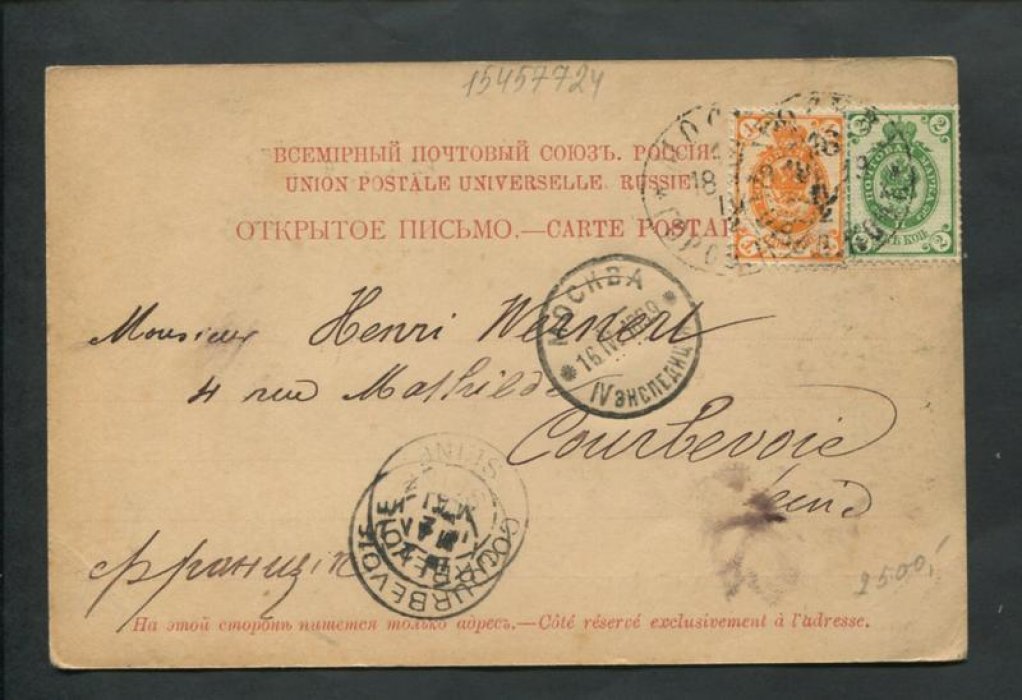 15457724
ВСЕМІРНЫЙ ПОЧТОВЫЙ СОЮЗЪ. РОССІЯ.
UNION POSTALE UNIVERSELLE. RUSSIE
ОТКРЫТОЕ ПИСЬМО.—CARTE POSTAL
МОСКВА
IV ЭКСПЕДИЦ
Monsieur Henri Wernert
4 rue Mathilde
Courbevoie
Seine
COURBEVOIE
Франція
2500
На этой сторонѣ пишется только адресъ.—Côté réservé exclusivement à l'adresse.